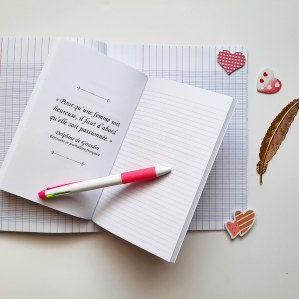 « Pour qu'une femme soit
heureuse, il faut d'abord
qu'elle soit passionnée. »
Delphine de Girardin
Écrivaine et journaliste française